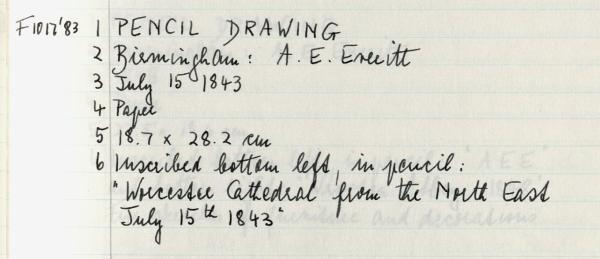 F1017'83 1 PENCIL DRAWING
2 Birmingham: A. E. Everitt
3 July 15 1843
4 Paper
5 18.7 x 28.2 cm
6 Inscribed bottom left, in pencil:
"Worcester Cathedral from the North East
July 15th 1843"